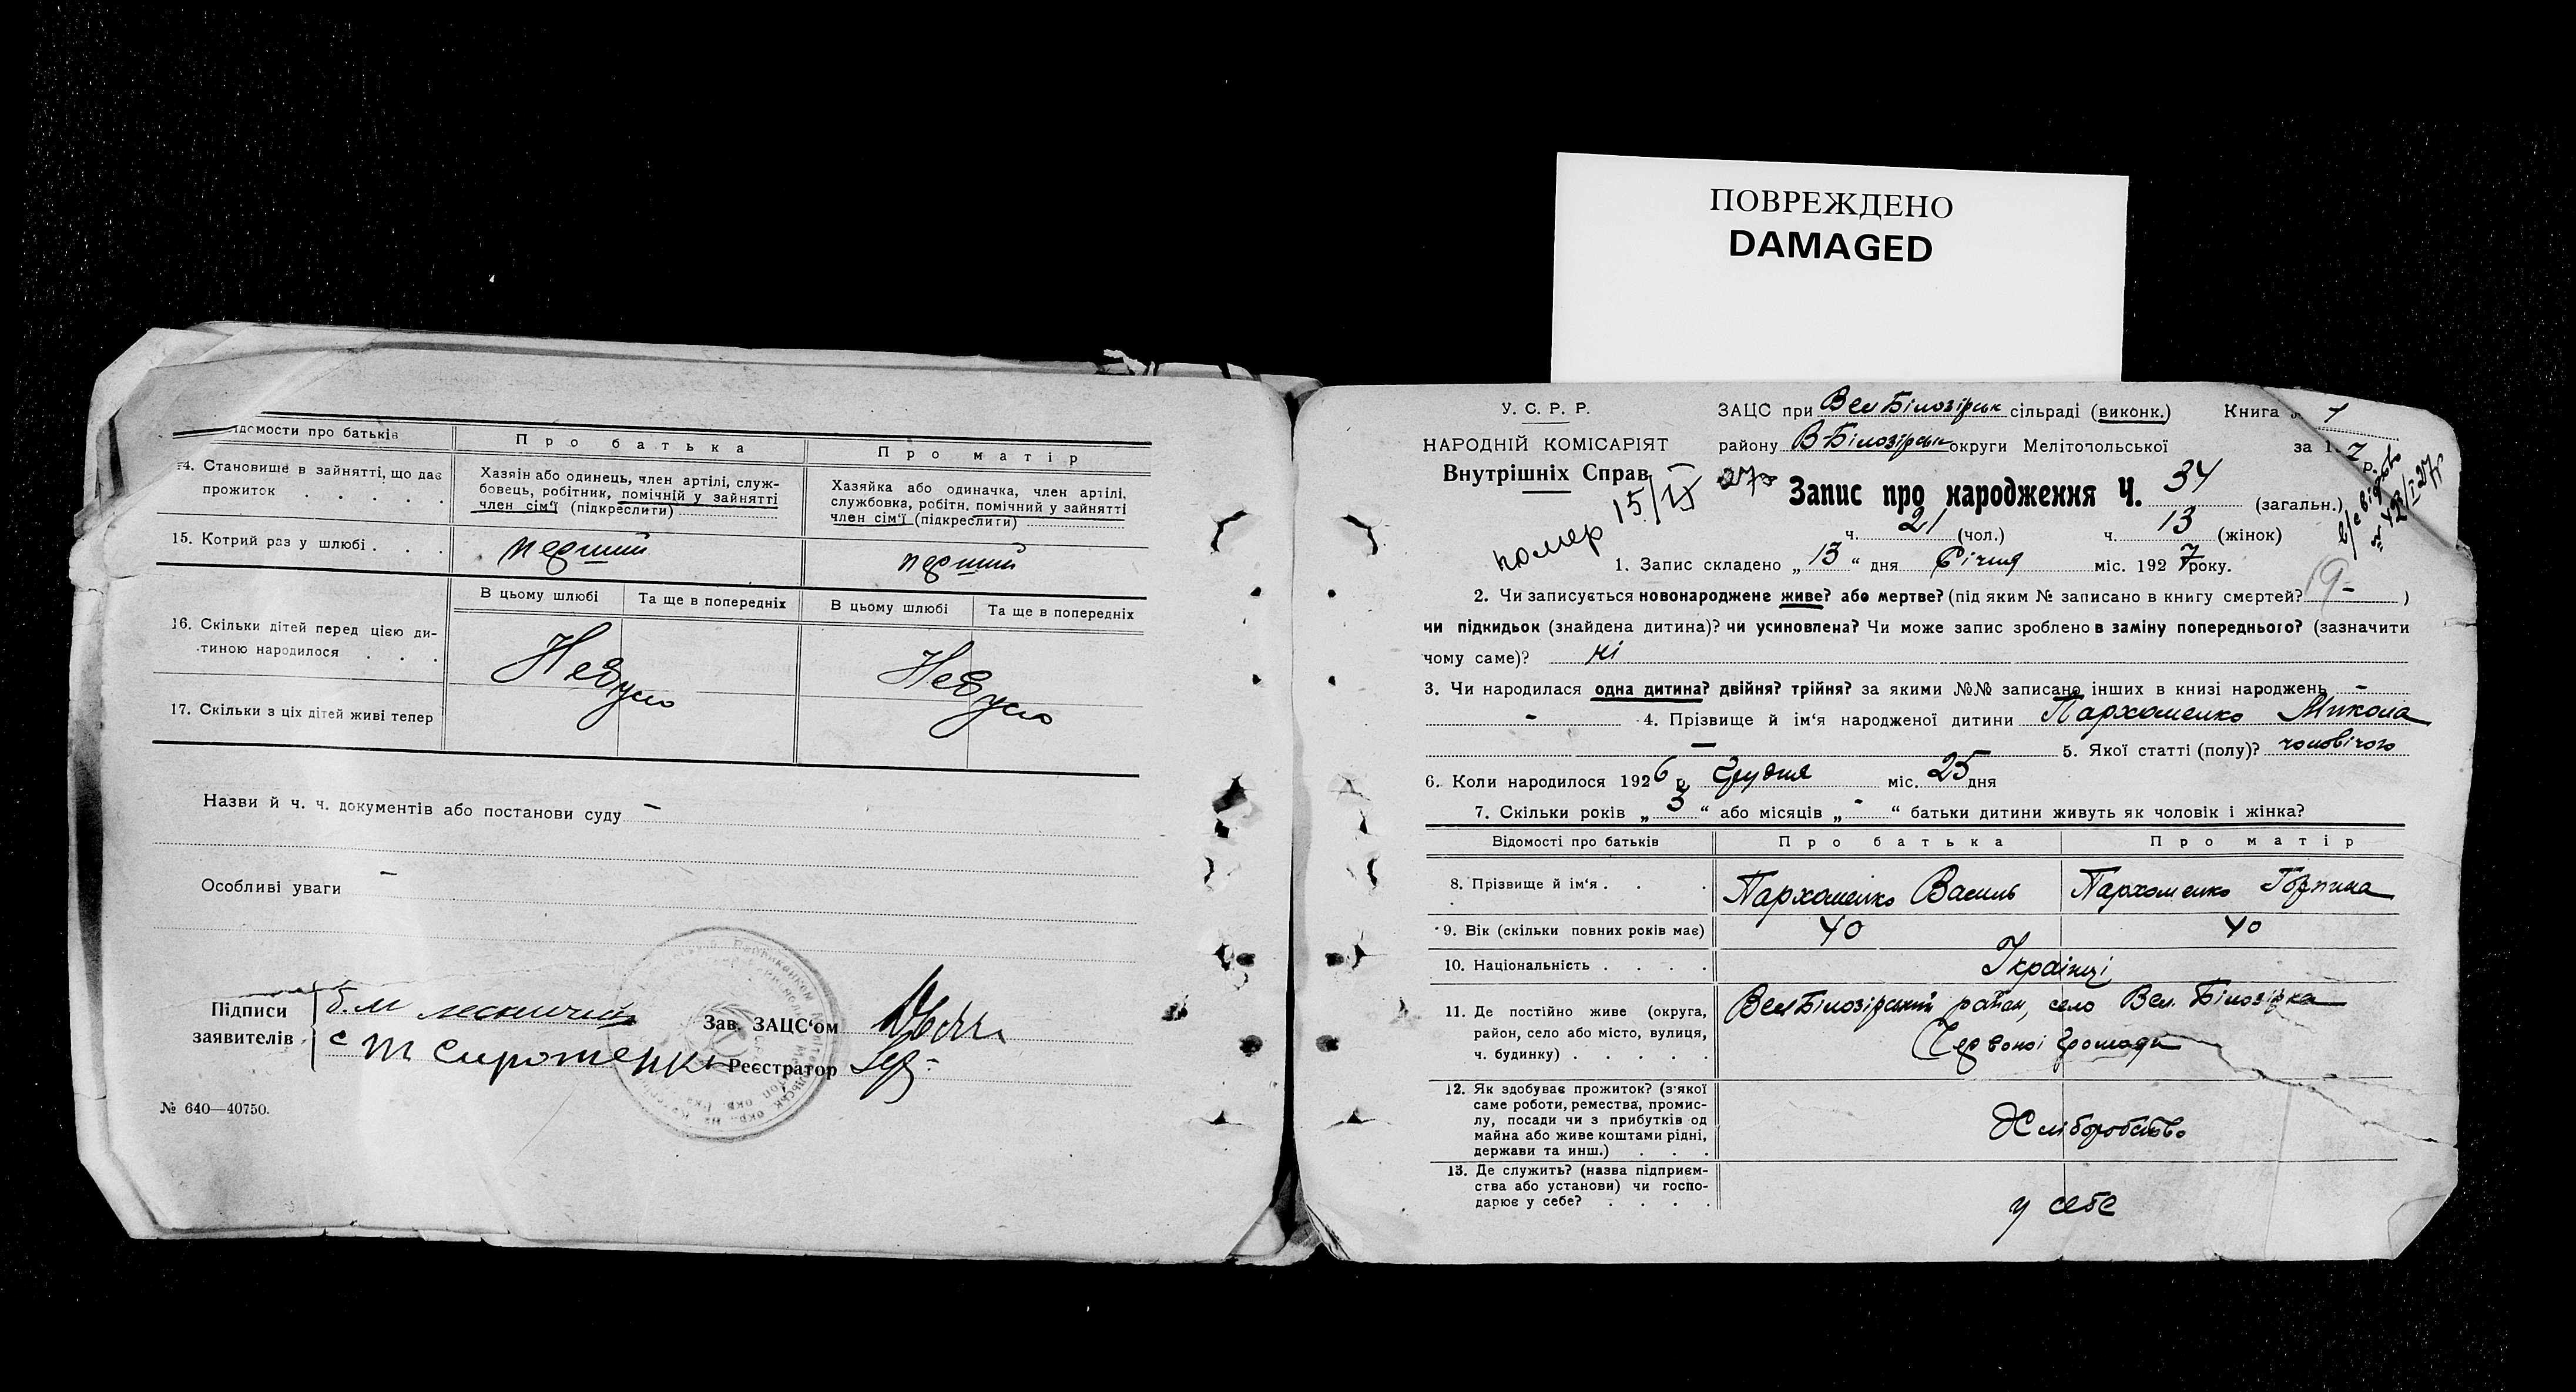 ПОВРЕЖДЕНО
DAMAGED
домости про батьків
Про батька
Про матір
14. Становище в зайнятті, що дає
прожиток . . . . .
Хазяін або одинець, член артілі, служ-
бовець, робітник, помічній у зайнятті
член сім'ї (підкреслити)
Хазяйка або одиначка, член артілі,
службовка, робітн. помічний у зайнятті
член сім'ї (підкреслити)
15. Котрий раз у шлюбі . . .
перший
перший
В цьому шлюбі
Та ще в попередніх
В цьому шлюбі
Та ще в попередніх
16. Скільки дітей перед цією ди-
тиною народилося . . .
Небуло
Небуло
17. Скільки з ціх дітей живі тепер
Назви й ч. ч. документів або постанови суду -
Особливі уваги -
Підписи
заявителів
с т Сиротенко
Зав. ЗАЦС'ом
Реєстратор
№ 640—40750.
У. С. Р. Р.
НАРОДНІЙ КОМІСАРІЯТ
Внутрішніх Справ
помер 15/IV 27р
ЗАЦС при ВелБілозірськ сільраді (виконк.) Книга 1
району ВБілозірськ округи Мелітопольської за 1 7 р.
Запис про народження Ч. 34 (загальн.)
ч. 21 (чол.) ч. 13 (жінок)
1. Запис складено „ 13 “ дня Січня міс. 1927 року.
2. Чи записується новонароджене живе? або мертве? (під яким № записано в книгу смертей? - )
чи підкидьок (знайдена дитина)? чи усиновлена? Чи може запис зроблено в заміну попереднього? (зазначити
чому саме)? ні
3. Чи народилася одна дитина? двійня? трійня? за якими №№ записано інших в книзі народжень -
- 4. Прізвище й ім'я народженої дитини Пархоменко Микола
- 5. Якої статті (полу)? чоловічого
6. Коли народилося 1926 р. Грудня міс. 25 дня
7. Скільки років „ 3 “ або місяців „ - “ батьки дитини живуть як чоловік і жінка?
Відомості про батьків
Про батька
Про матір
8. Прізвище й ім'я . . .
Пархоменко Василь
Пархоменко Горпина
9. Вік (скільки повних років має)
40
40
10. Національність . . . .
Українці
11. Де постійно живе (округа,
район, село або місто, вулиця,
ч. будинку) . . . . .
ВелБілозірський район, село Вел. Білозірка
Червоної Громади
12. Як здобуває прожиток? (з'якої
саме роботи, ремества, промис-
лу, посади чи з прибутків од
майна або живе коштами рідні,
держави та инш.) . . .
Хліборобство
13. Де служить? (назва підприєм-
ства або установи) чи госпо-
дарює у себе? . . . .
у себе